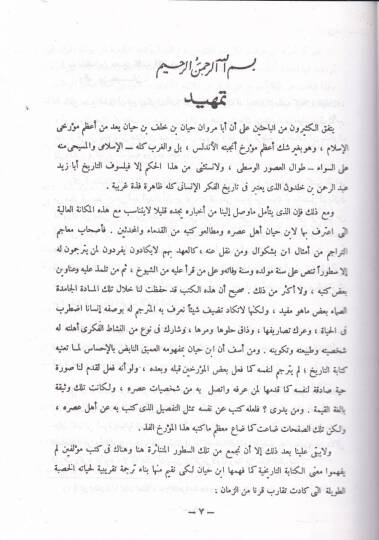 بسم الله الرحمن الرحيم
تمهيد
يتفق الكثيرون من الباحثين على أن أبا مروان حيان بن خلف بن حيان يعد من أعظم مؤرخى
الإسلام ، وهو بغير شك أعظم مؤرخ أنجبته الأندلس ، بل والغرب كله – الإسلامى والمسيحى منه
على السواء – طوال العصور الوسطى ، ولا نستثنى من هذا الحكم إلا فيلسوف التاريخ أبا زيد
عبد الرحمن بن خلدون الذى يعتبر فى تاريخ الفكر الإنسانى كله ظاهرة فذة غريبة .
ومع ذلك فإن الذى يتأمل ما وصل إلينا من أخباره يجده قليلا لا يتناسب مع هذه المكانة العالية
التى اعترف بها لابن حيان أهل عصره ومطالعو كتبه من القدماء والمحدثين . فأصحاب معاجم
التراجم من أمثال ابن بشكوال ومن نقل عنه ، كالعهد بهم لا يكادون يفردون لمن يترجمون له
إلا سطوراً تنص على سنة مولده وسنة وفاته وعلى من قرأ عليه من الشيوخ ، ثم من تلمذ عليه وعناوين
بعض كتبه ، ولا أكثر من ذلك . صحيح أن هذه الكتب قد حفظت لنا خلال تلك المادة الجامدة
الصماء بعض ما هو مفيد ، ولكنها لا تكاد تضيف شيئاً نعرف به المترجم له بوصفه إنسانا اضطرب
فى الحياة ، وعرك تصاريفها ، وذاق حلوها ومرها ، وشارك فى نوع من النشاط الفكرى أهلته له
شخصيته وطبيعته وتكوينه . ومن أسف أن ابن حيان بمفهومه العميق النابض بالإحساس لما تعنيه
كتابة التاريخ ؛ لم يترجم لنفسه كما فعل بعض المؤرخين قبله وبعده ، ولو أنه فعل لقدم لنا صورة
حية صادقة لنفسه كما قدمها لمن عرفه واتصل به من شخصيات عصره ، ولكانت تلك وثيقة
بالغة القيمة . ومن يدرى ؟ فلعله كتب عن نفسه بمثل التفصيل الذى كتب به عن أهل عصره ،
ولكن تلك الصفحات ضاعت كما ضاع معظم ما كتبه هذا المؤرخ الفذ .
ولا يبقى علينا بعد ذلك إلا أن نجمع من تلك السطور المتناثرة هنا وهناك فى كتب مؤلفين لم
يفهموا معنى الكتابة التاريخية كما فهمها ابن حيان لكى نقيم منها بناء ترجمة تقريبية لحياته الخصبة
الطويلة التى كادت تقارب قرنا من الزمان :
– ٧ –